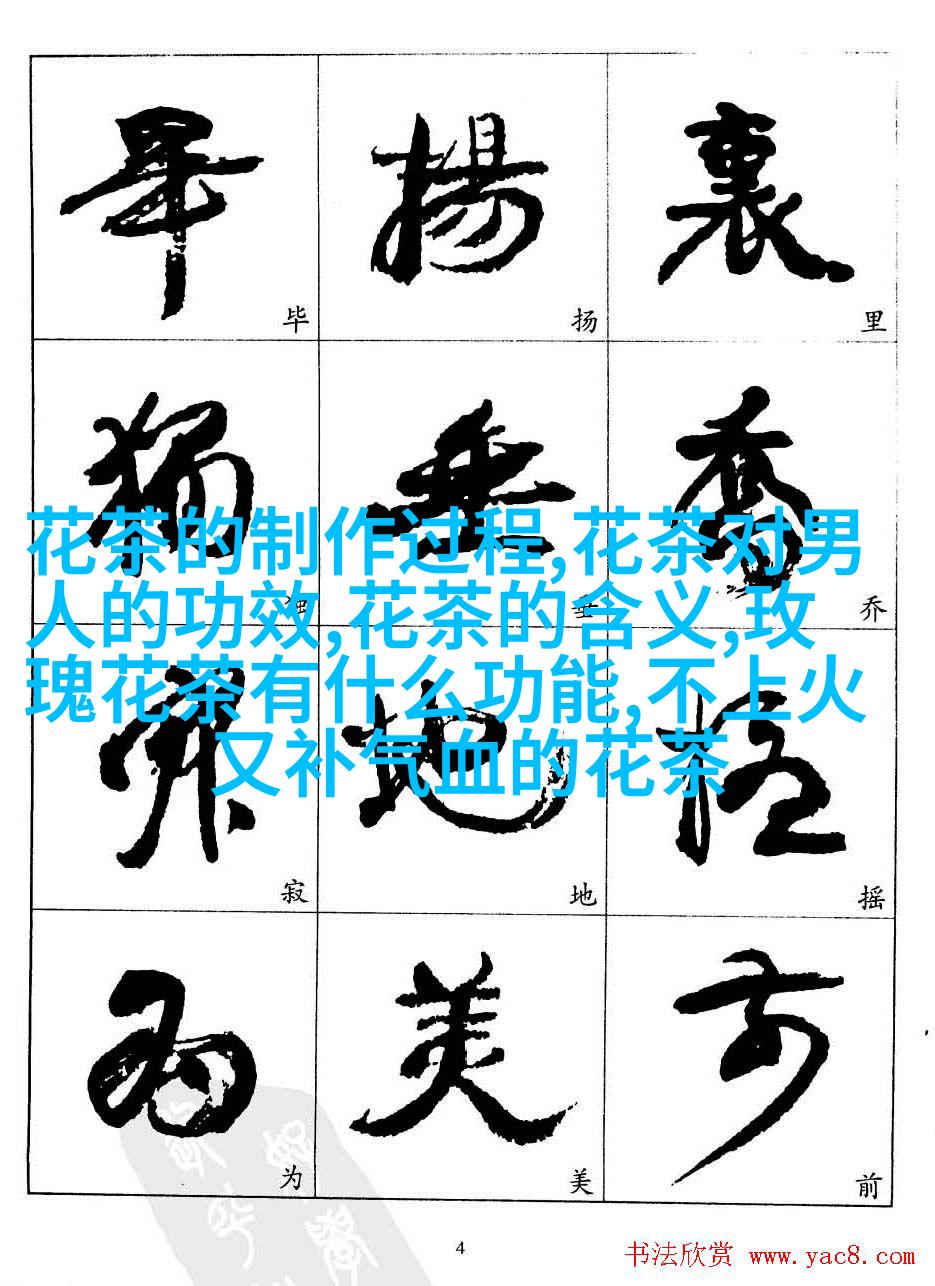 畢 揚 裏
毕 扬 里
獨 垂 喬
花茶的制作过程,花茶对男
人的功效,花茶的含义,玫
瑰花茶有什么功能,不上火
又补气血的花茶
独 垂 乔
寂 地 摇
寂 地 摇
为 美 前
为 美 前
4
书法欣赏 www.yac8.com